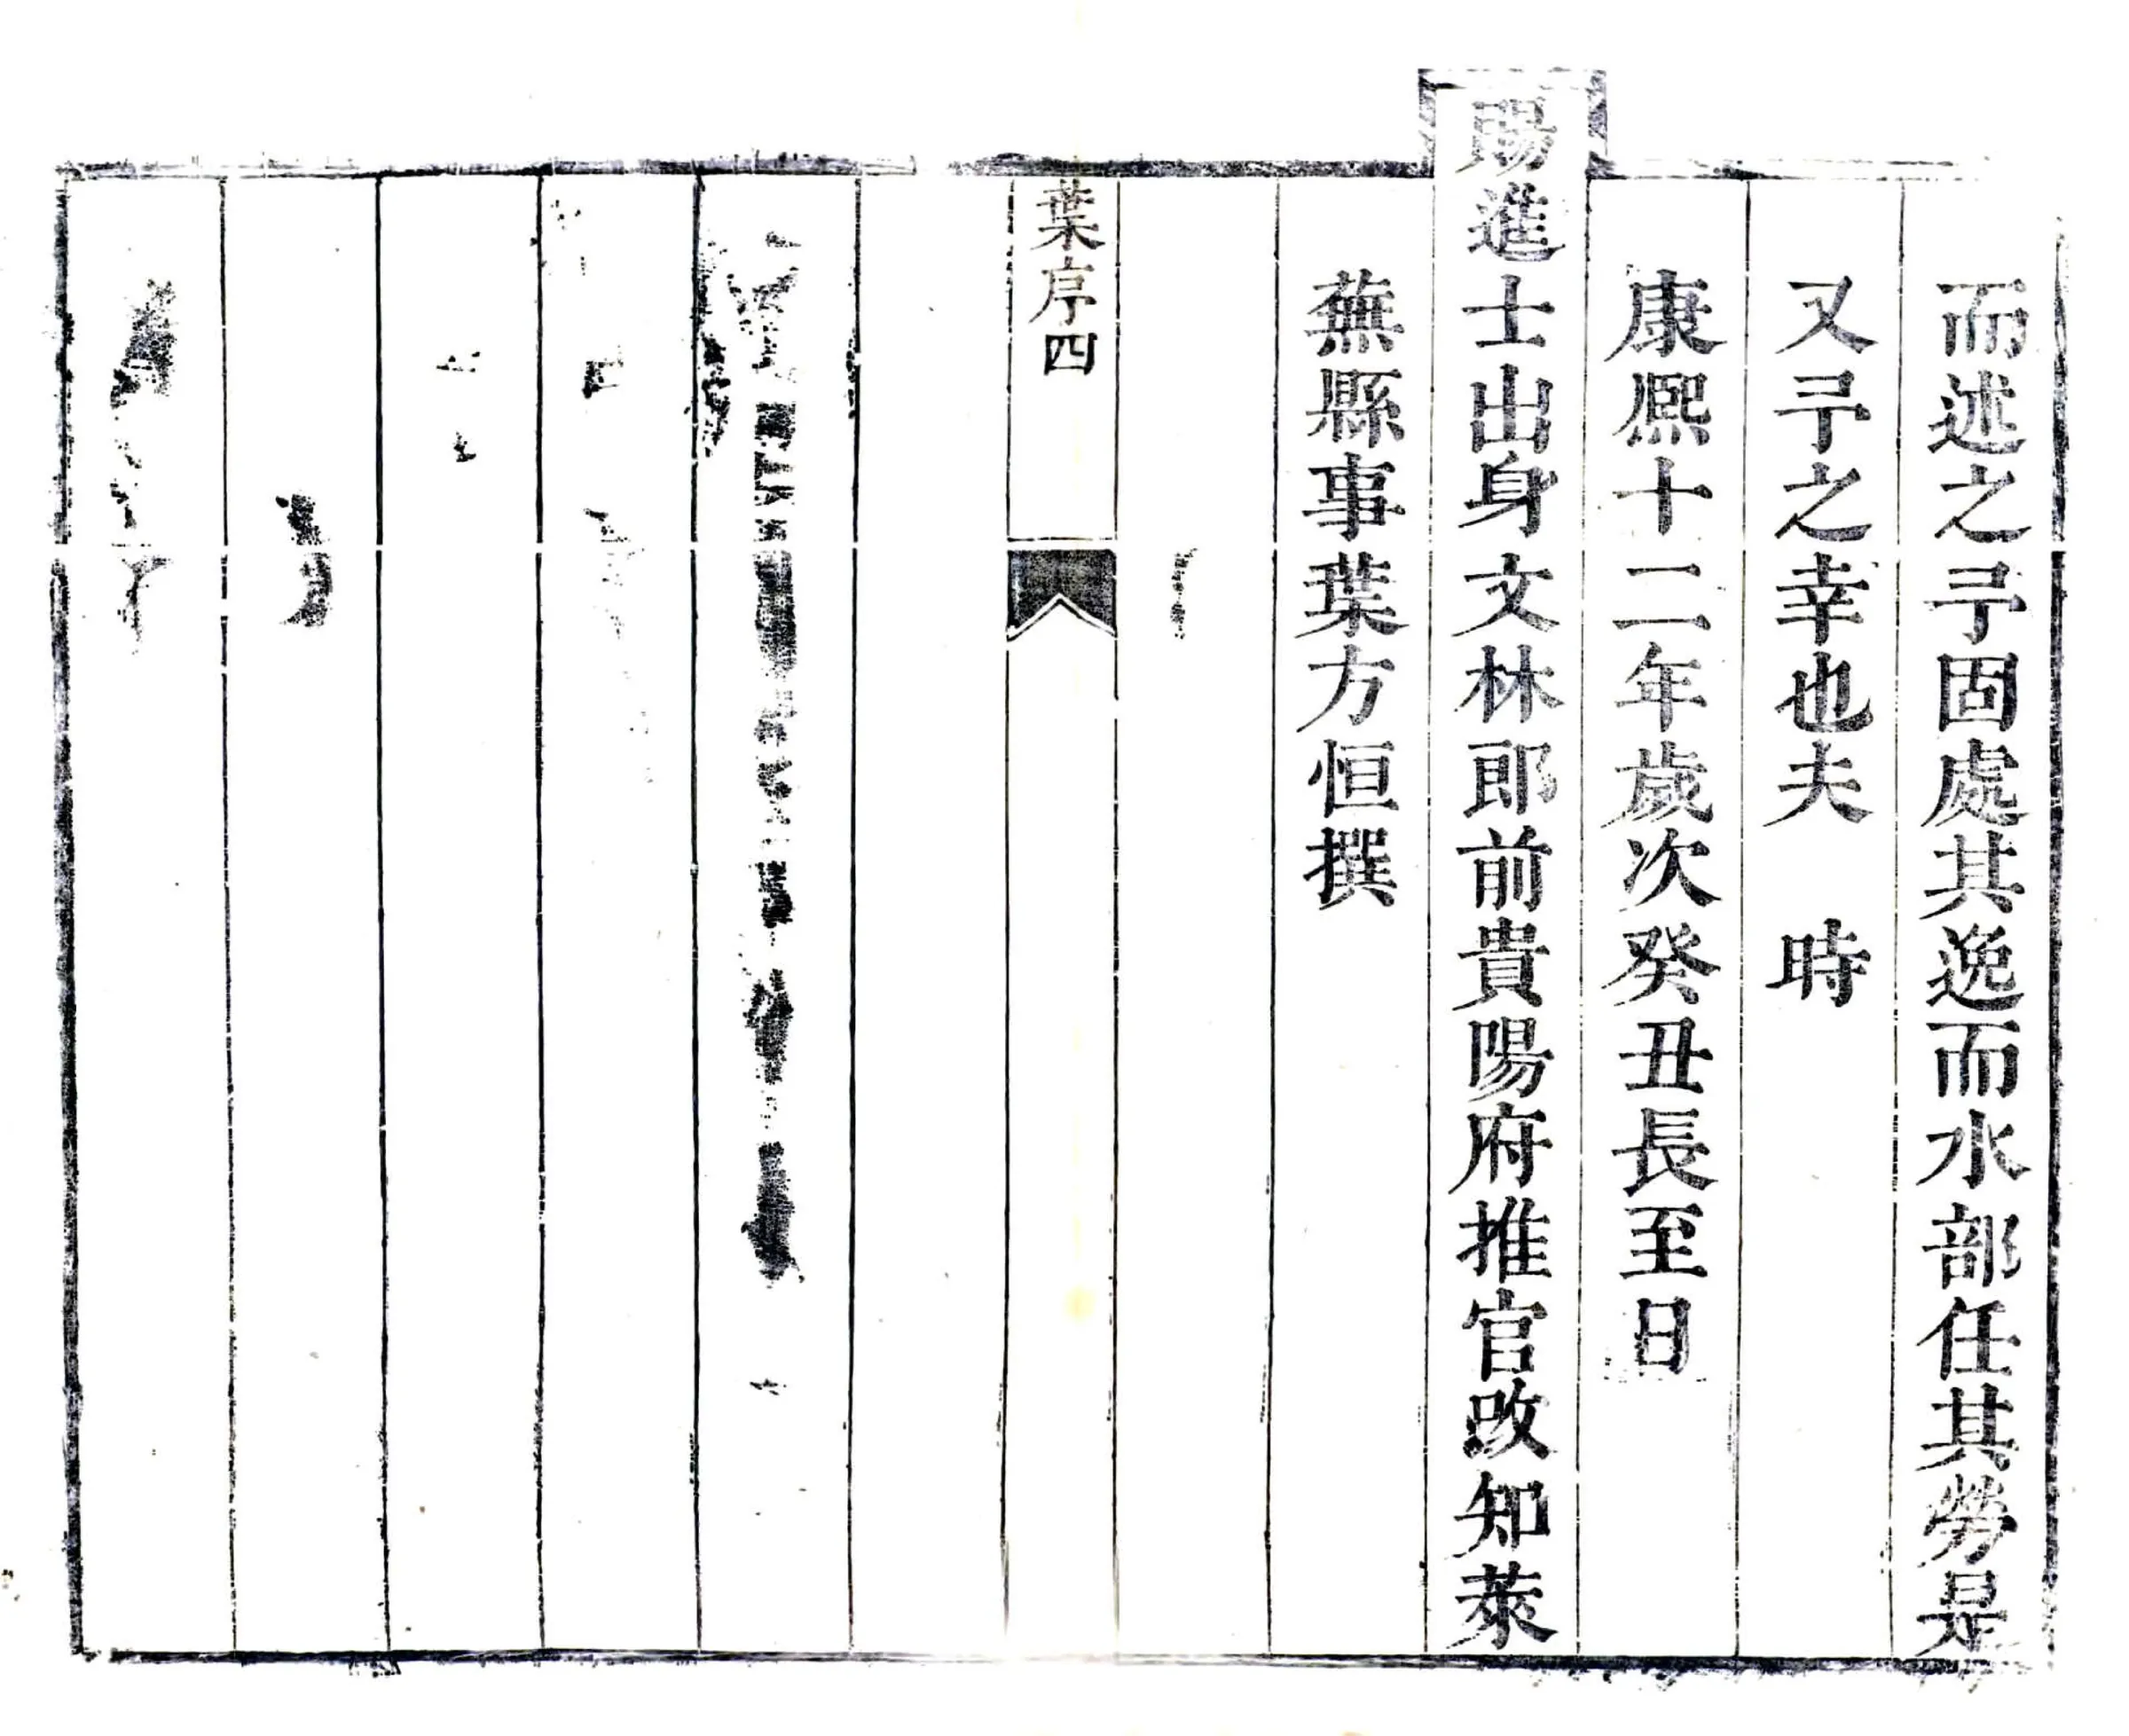 而述之予固處其逸而水部任其勞是
又予之幸也夫　時
康熙十二年歲次癸丑長至日
賜進士出身文林郎前貴陽府推官改知萊
蕪縣事葉方恒撰
葉序四